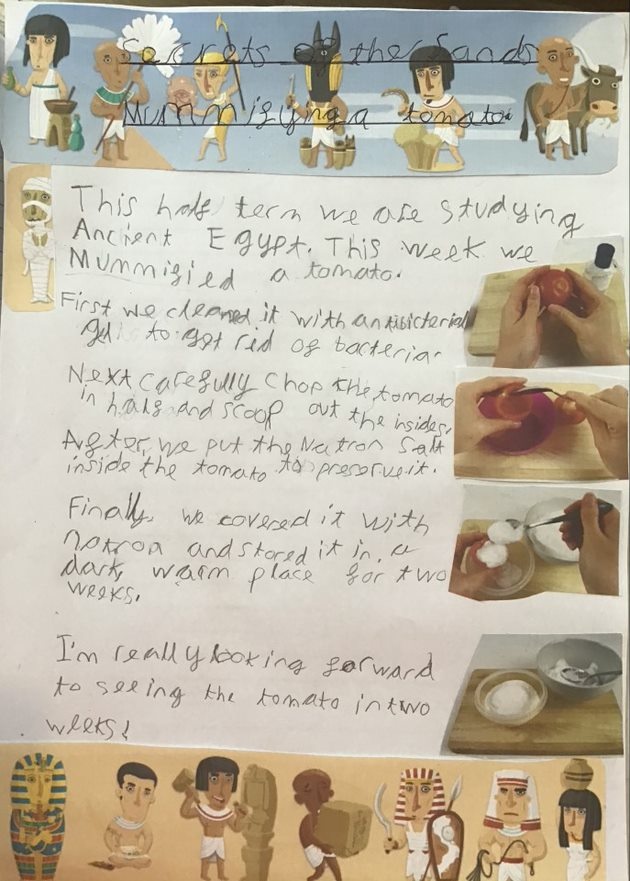 Secrets of the Sands
Mummifying a tomato
This half term we are studying
Ancient Egypt. This week we
Mummified a tomato.
First we cleaned it with antibicterial
gel to get rid of bacteria.
Next carefully chop the tomato
in half and scoop out the insides.
After, we put the Natron Salt
inside the tomato to preserve it.
Finally, we covered it with
natron and stored it in a
dark, warm place for two
weeks.
I'm really looking forward
to seeing the tomato in two
weeks!